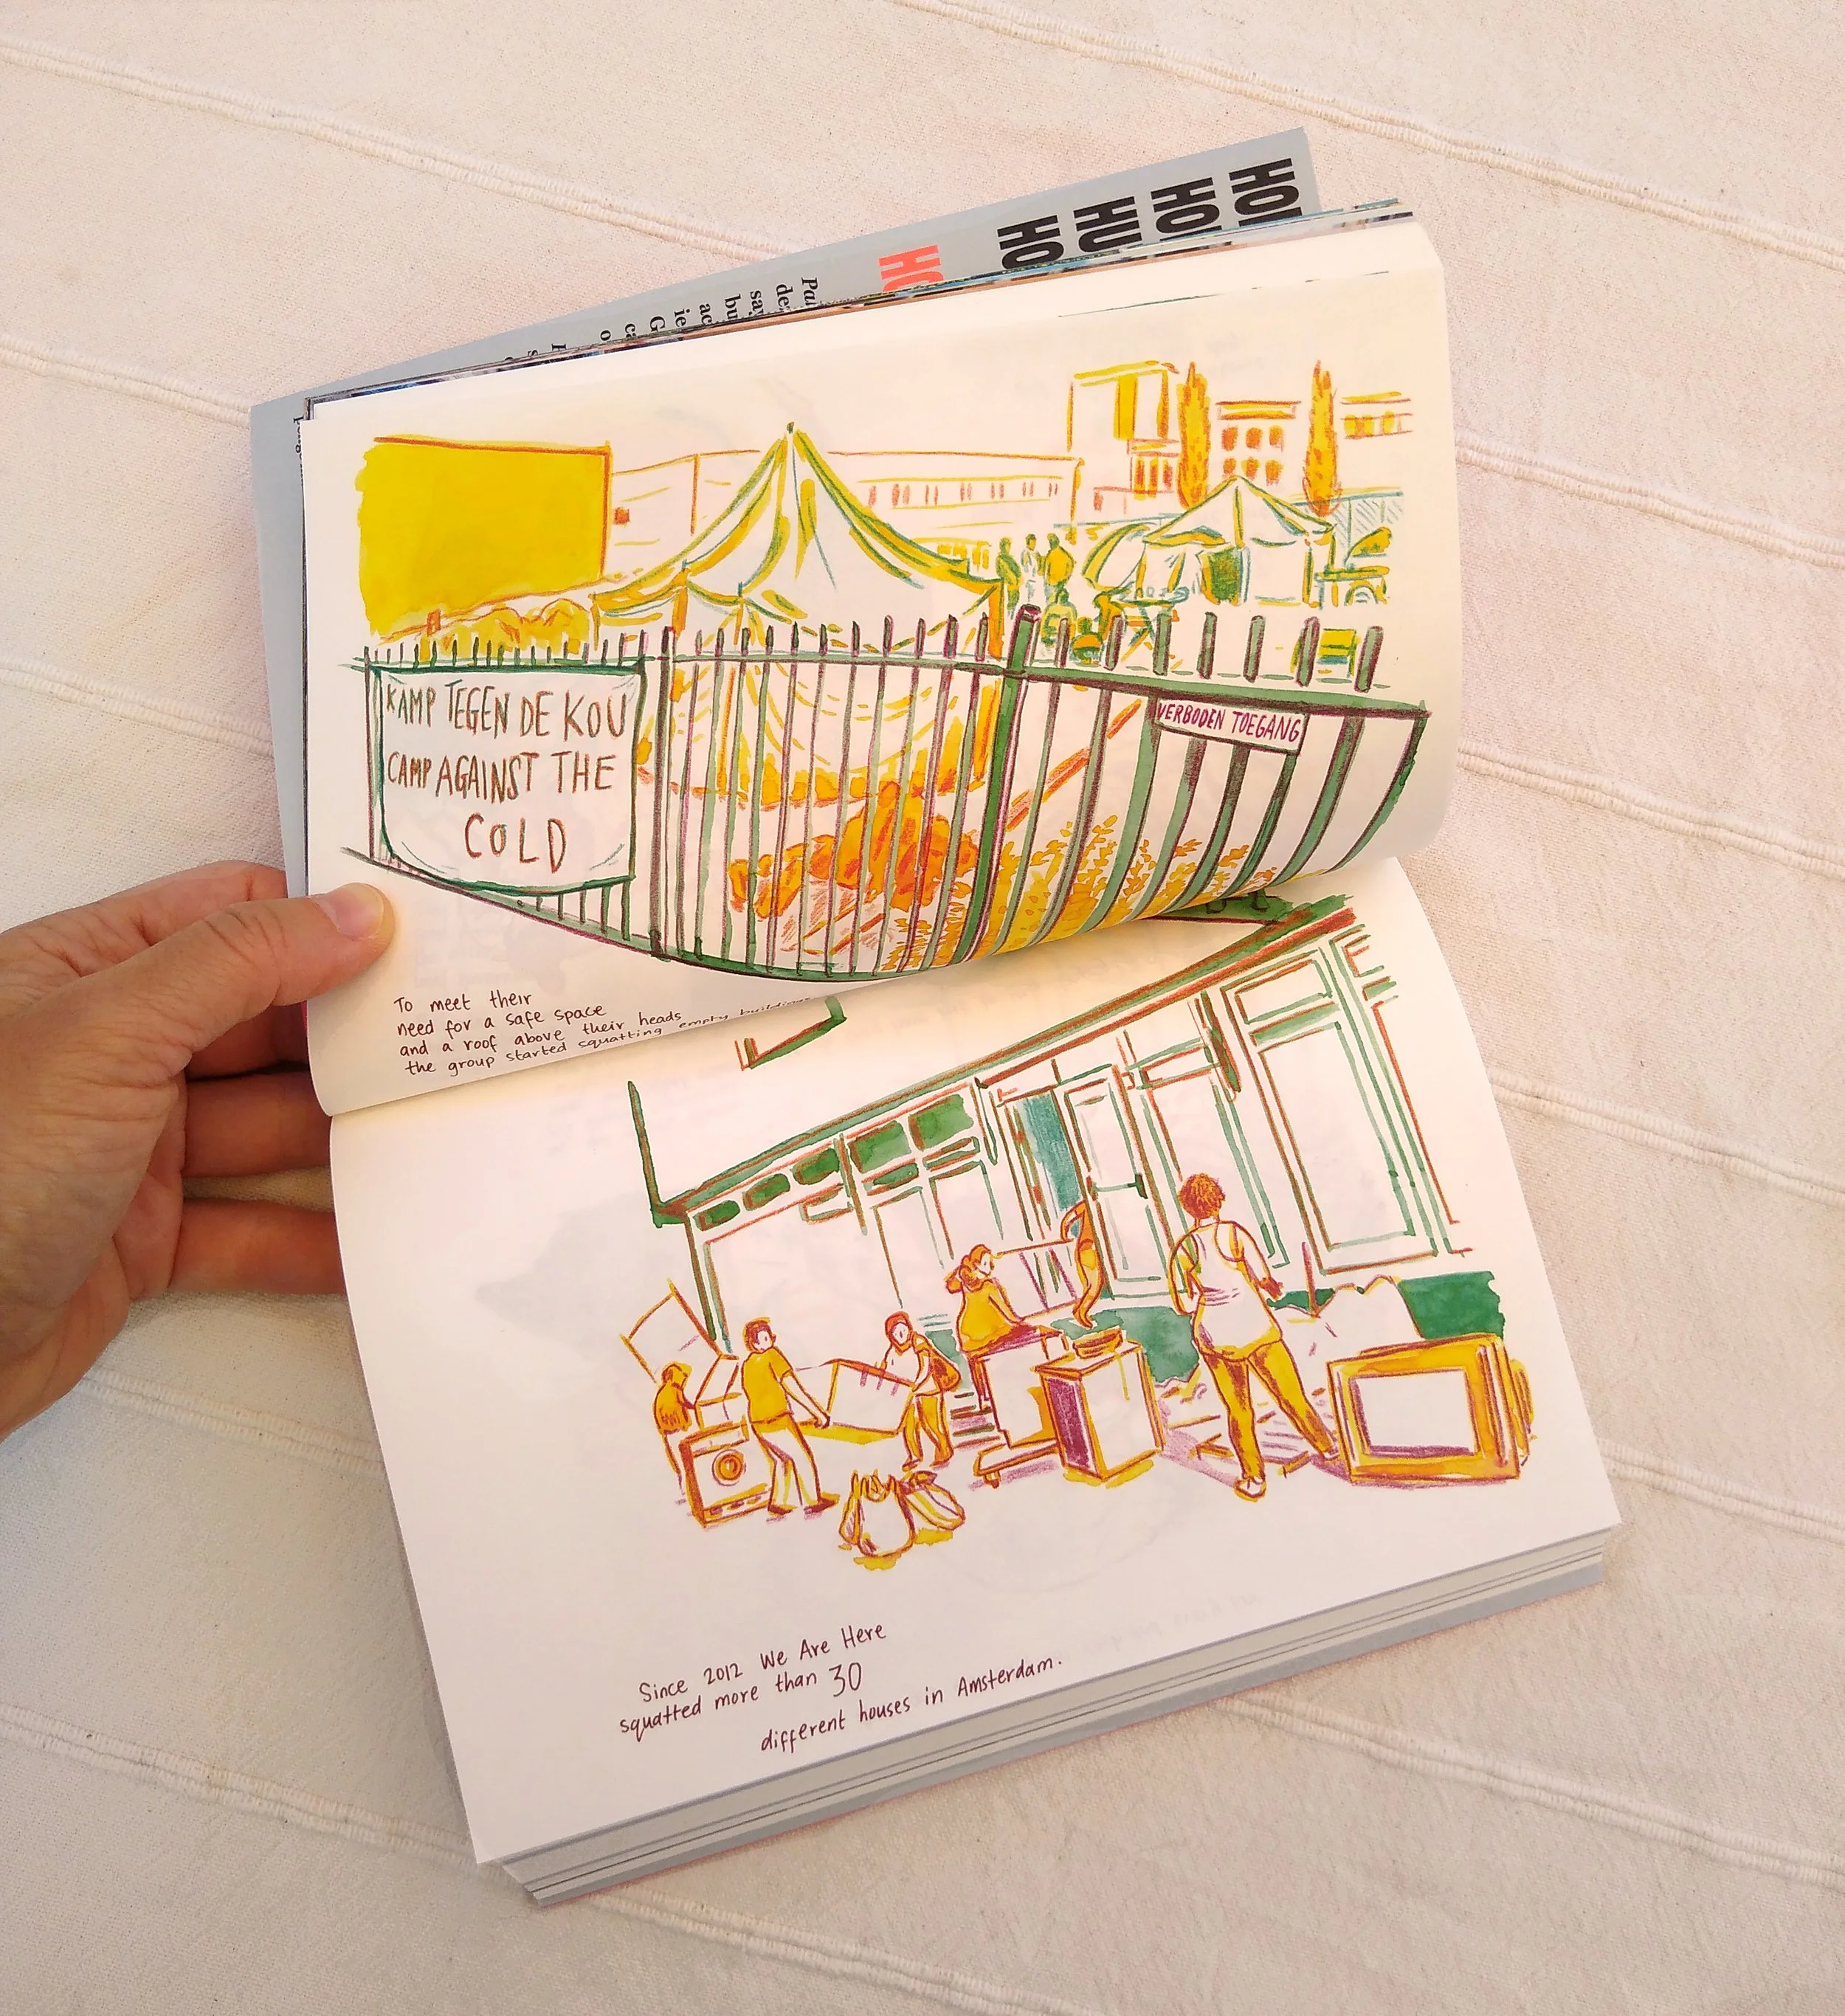 KAMP TEGEN DE KOU
CAMP AGAINST THE
COLD
VERBODEN TOEGANG
To meet their
need for a safe space
and a roof above their heads
the group started squatting empty buildings
Since 2012 We Are Here
squatted more than 30
different houses in Amsterdam.